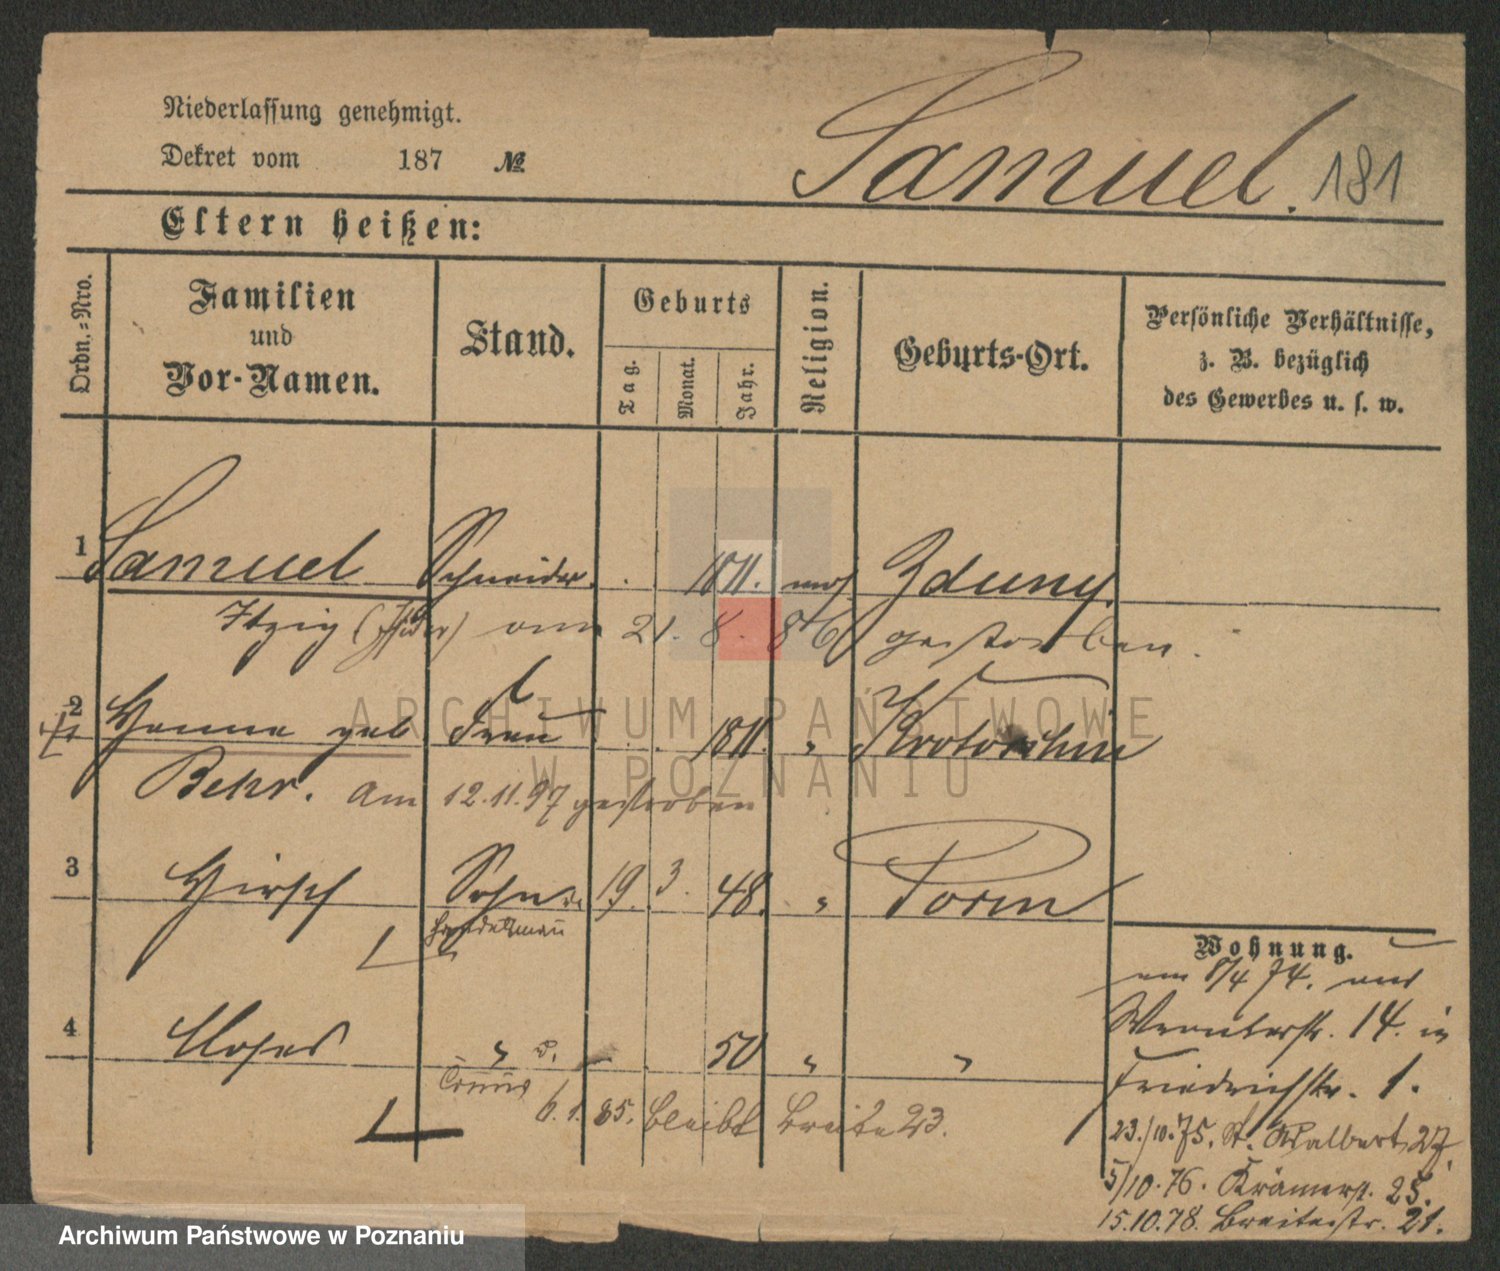 Niederlassung genehmigt.
Dekret vom 187 №
Samuel. 181
Eltern heißen:
Ordn.-Nro.
Familien und Vor-Namen.
Stand.
Geburts
Tag.
Monat.
Jahr.
Religion.
Geburts-Ort.
Persönliche Verhältnisse, z. B. bezüglich des Gewerbes u. s. w.
1 Samuel Schneider. 1811. mos Zduny.
Itzig (Isidor) am 21. 8. 86 gestorben.
2 Hanne geb Frau 1811. " Krotoschin
Behr. am 12.11.97 gestorben
3 Hirsch Sohn 19. 3. 48. " Posen
Handelsmann
Wohnung.
am 8/4 74. aus
14. in
Friedrichstr. 1.
4 Moses " 50 " "
Commis
6. 1. 85. bleibt Breite 23.
23./10.75. St. Adalbert 27.
5/10.76. Krämerst. 25.
15.10.78. Breitestr. 21.
ARCHIWUM PAŃSTWOWE
W POZNANIU
Archiwum Państwowe w Poznaniu